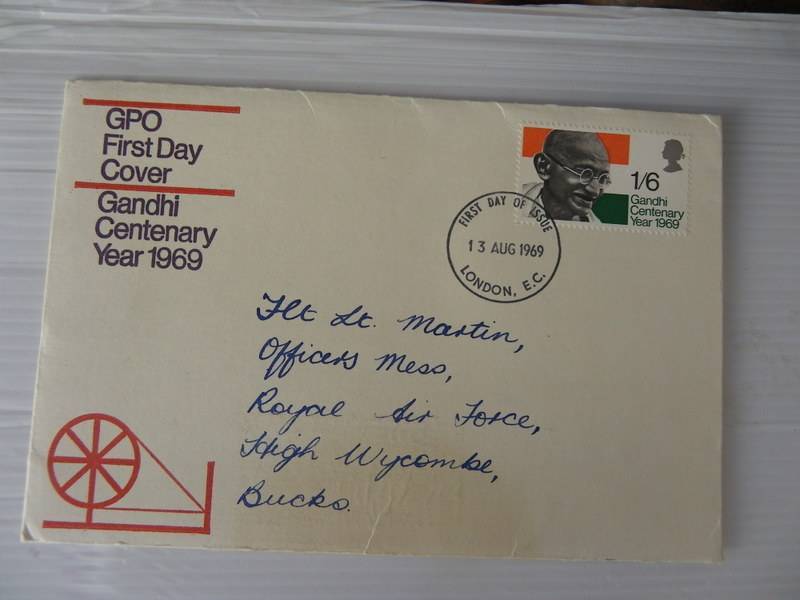 GPO
First Day
Cover
Gandhi
Centenary
Year 1969
1/6
Gandhi
Centenary
Year 1969
FIRST DAY OF ISSUE
13 AUG 1969
LONDON, E.C.
Flt Lt. Martin,
Officers Mess,
Royal Air Force,
High Wycombe,
Bucks.